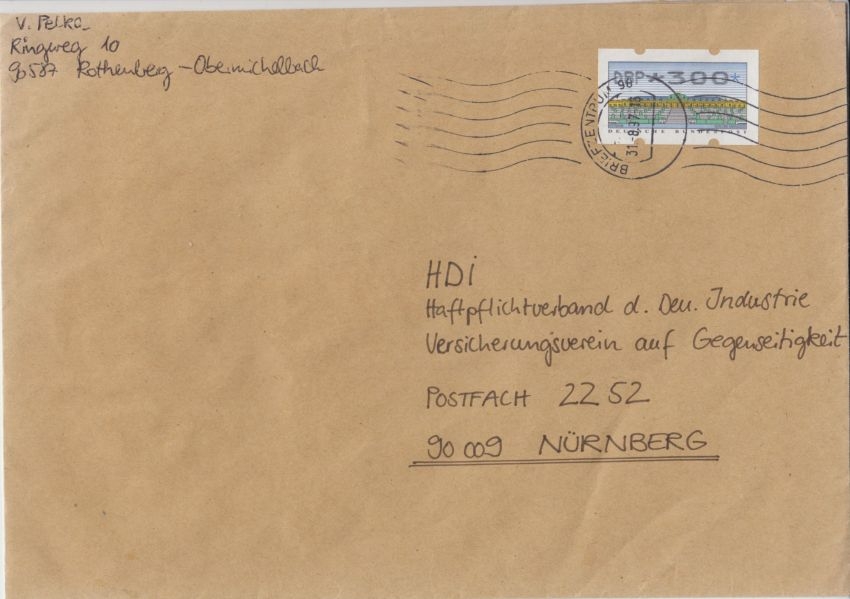 V. Pelka
Ringweg 10
90587 Rothenberg - Obermichelbach
DBP *300*
DEUTSCHE BUNDESPOST
BRIEFZENTRUM 90
31-8.97-15
HDi
Haftpflichtverband d. Deu. Industrie
Versicherungsverein auf Gegenseitigkeit
POSTFACH 2252
90 009 NÜRNBERG